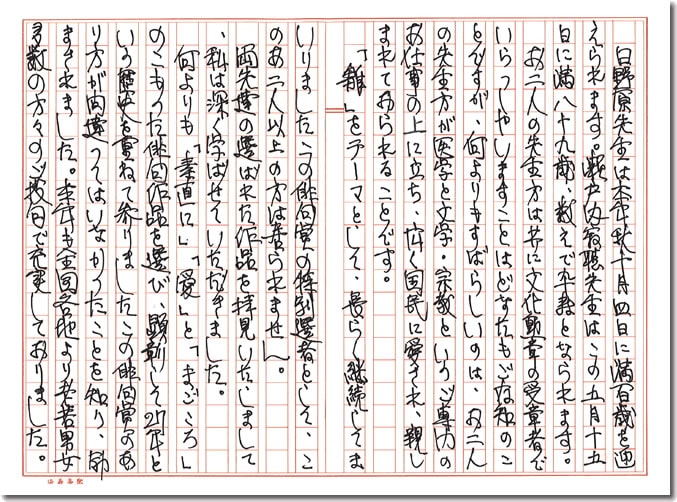 日野原先生は本年秋十月四日に満百歳を迎
えられます。瀬戸内寂聴先生はこの五月十五
日に満八十九歳、数えで卆寿となられます。
お二人の先生方は共に文化勲章の受章者で
いらっしゃいますことはどなたもご存知のこ
とですが、何よりもすばらしいのは、お二人
の先生方が医学と文学・宗教というご専門の
お仕事の上に立ち、広く国民に愛され、親し
まれておられることです。
「雛」をテーマとして、長らく継続してま
いりましたこの俳句賞の特別選者として、こ
のお二人以上の方は居られません。
両先達の選ばれた作品を拝見いたしまして
、私は深く学ばせていただきました。
何よりも「素直に」「愛」と「まごころ」
のこもった俳句作品を選び、顕彰して27年と
いう歴史を重ねて参りましたこの俳句賞のあ
り方が間違ってはいなかったことを知り、励
まされました。本年も全国各地より老若男女
多数の方々のご投句で充実しておりました。